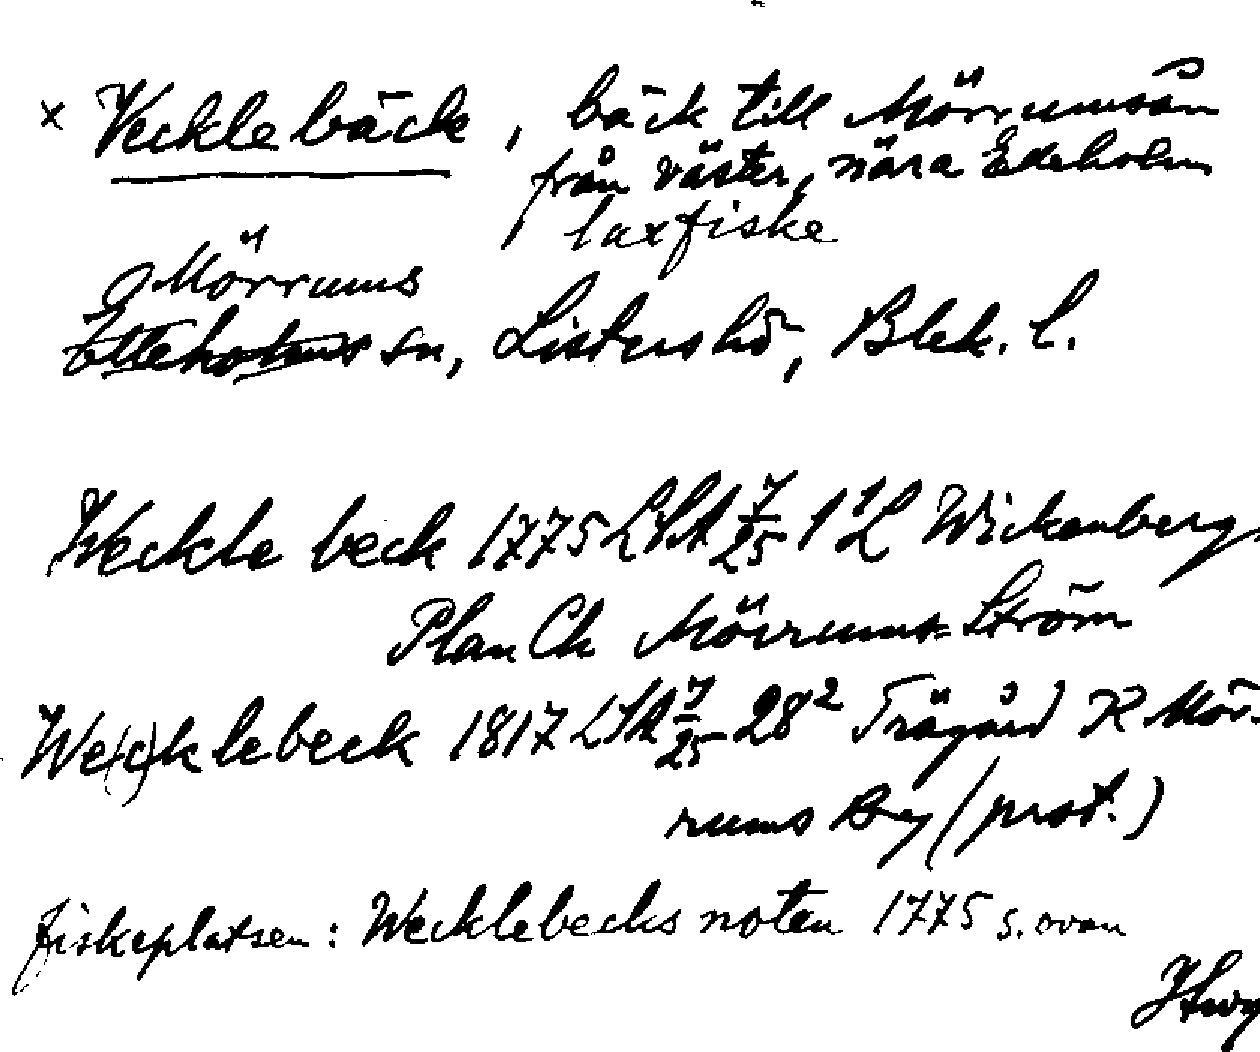 × Vecklebäck, bäck till Mörrumsån
från väster, nära Edeholm
laxfiske
Mörrums
Elleholms sn, Listers hd, Blek. l.
Weckle beck 1775 LSA 7/25 1¹ L Wickenberg
Plan Ch Mörrums=Ström
We(c)klebeck 1817 LSA 7/25 28² Trägård R Mör-
rums By (prot.)
fiskeplatsen: Wecklebecks noten 1775 s. ovan